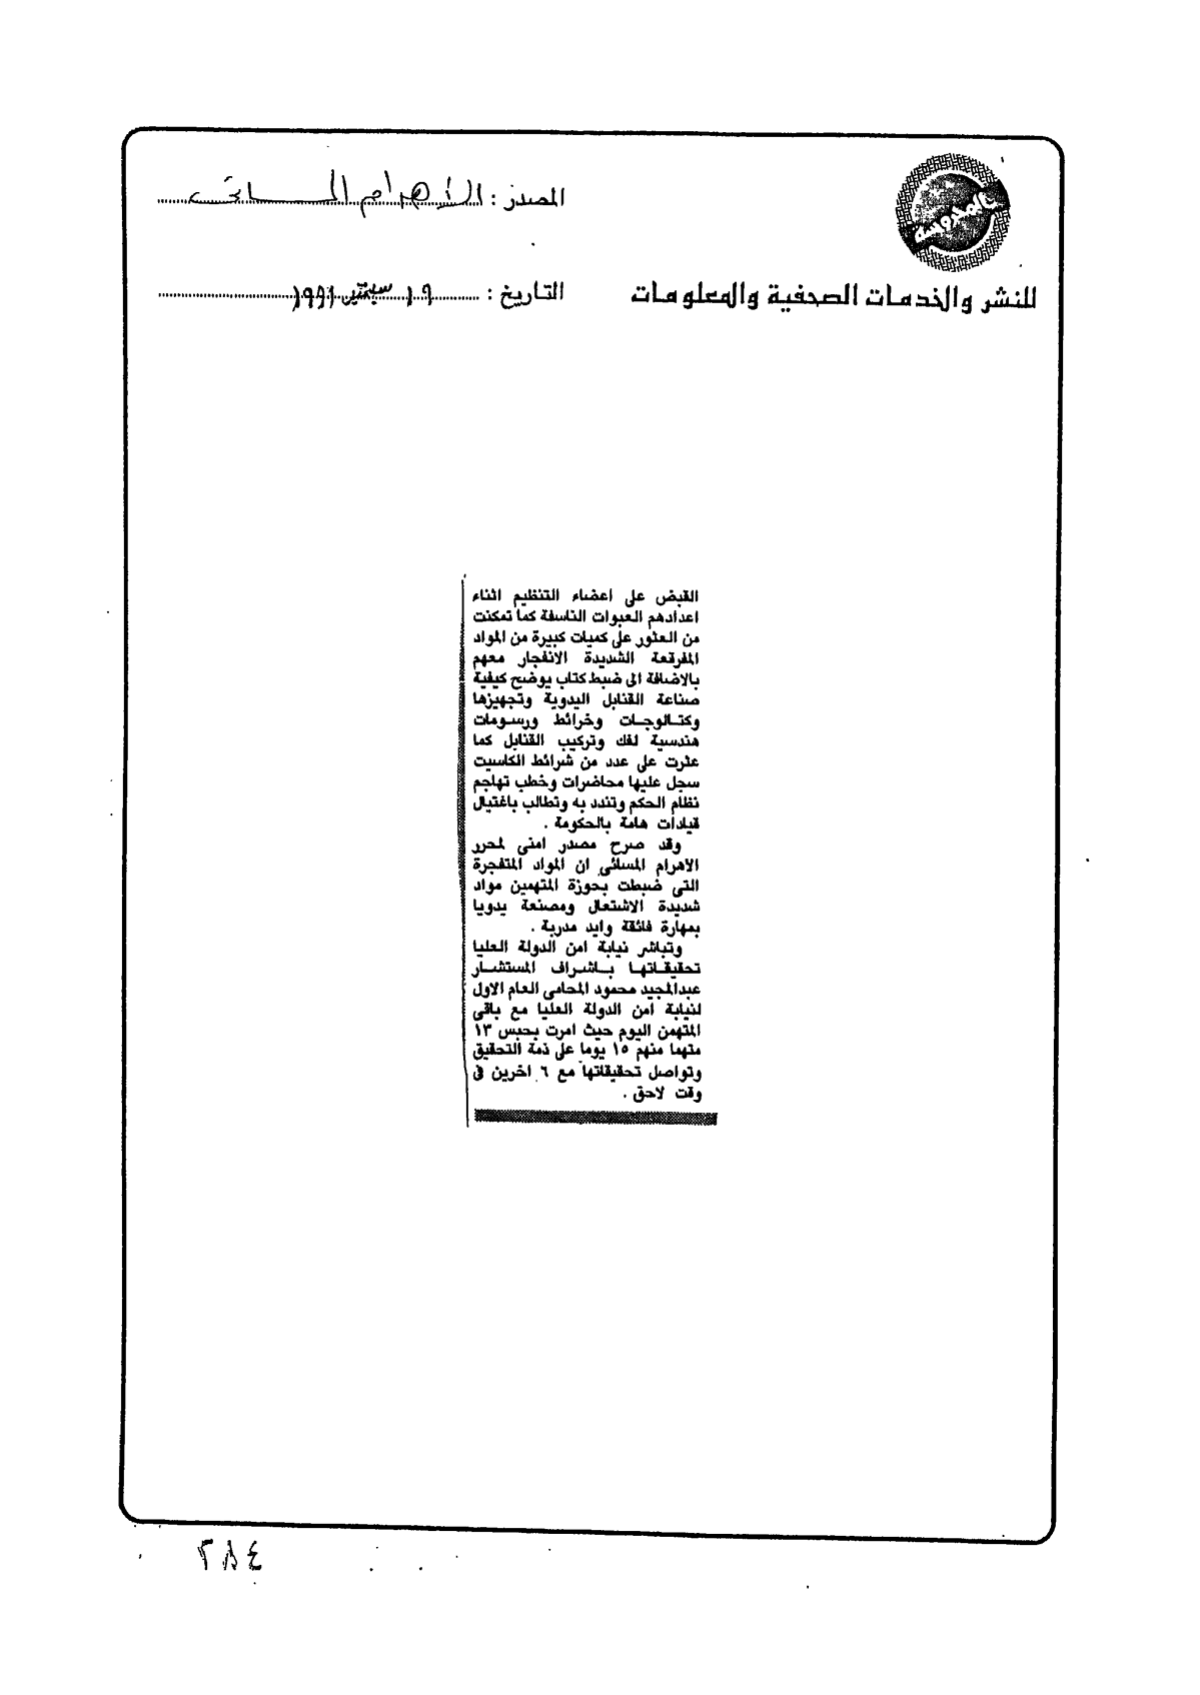 المحروسة
للنشر والخدمات الصحفية والمعلومات
المصدر : الأهرام المسائى
التاريخ : ١٩ سبتمبر ١٩٩١
القبض على اعضاء التنظيم اثناء
اعدادهم العبوات الناسفة كما تمكنت
من العثور على كميات كبيرة من المواد
المفرقعة الشديدة الانفجار معهم
بالاضافة الى ضبط كتاب يوضح كيفية
صناعة القنابل اليدوية وتجهيزها
وكتالوجات وخرائط ورسومات
هندسية لفك وتركيب القنابل كما
عثرت على عدد من شرائط الكاسيت
سجل عليها محاضرات وخطب تهاجم
نظام الحكم وتندد به وتطالب باغتيال
قيادات هامة بالحكومة .
وقد صرح مصدر امنى لمحرر
الاهرام المسائى ان المواد المتفجرة
التى ضبطت بحوزة المتهمين مواد
شديدة الاشتعال ومصنعة يدويا
بمهارة فائقة وايد مدربة .
وتباشر نيابة امن الدولة العليا
تحقيقاتها باشراف المستشار
عبدالمجيد محمود المحامى العام الاول
لنيابة امن الدولة العليا مع باقى
المتهمن اليوم حيث امرت بحبس ١٣
متهما منهم ١٥ يوما على ذمة التحقيق
وتواصل تحقيقاتها مع ٦ اخرين فى
وقت لاحق .
٢٨٤